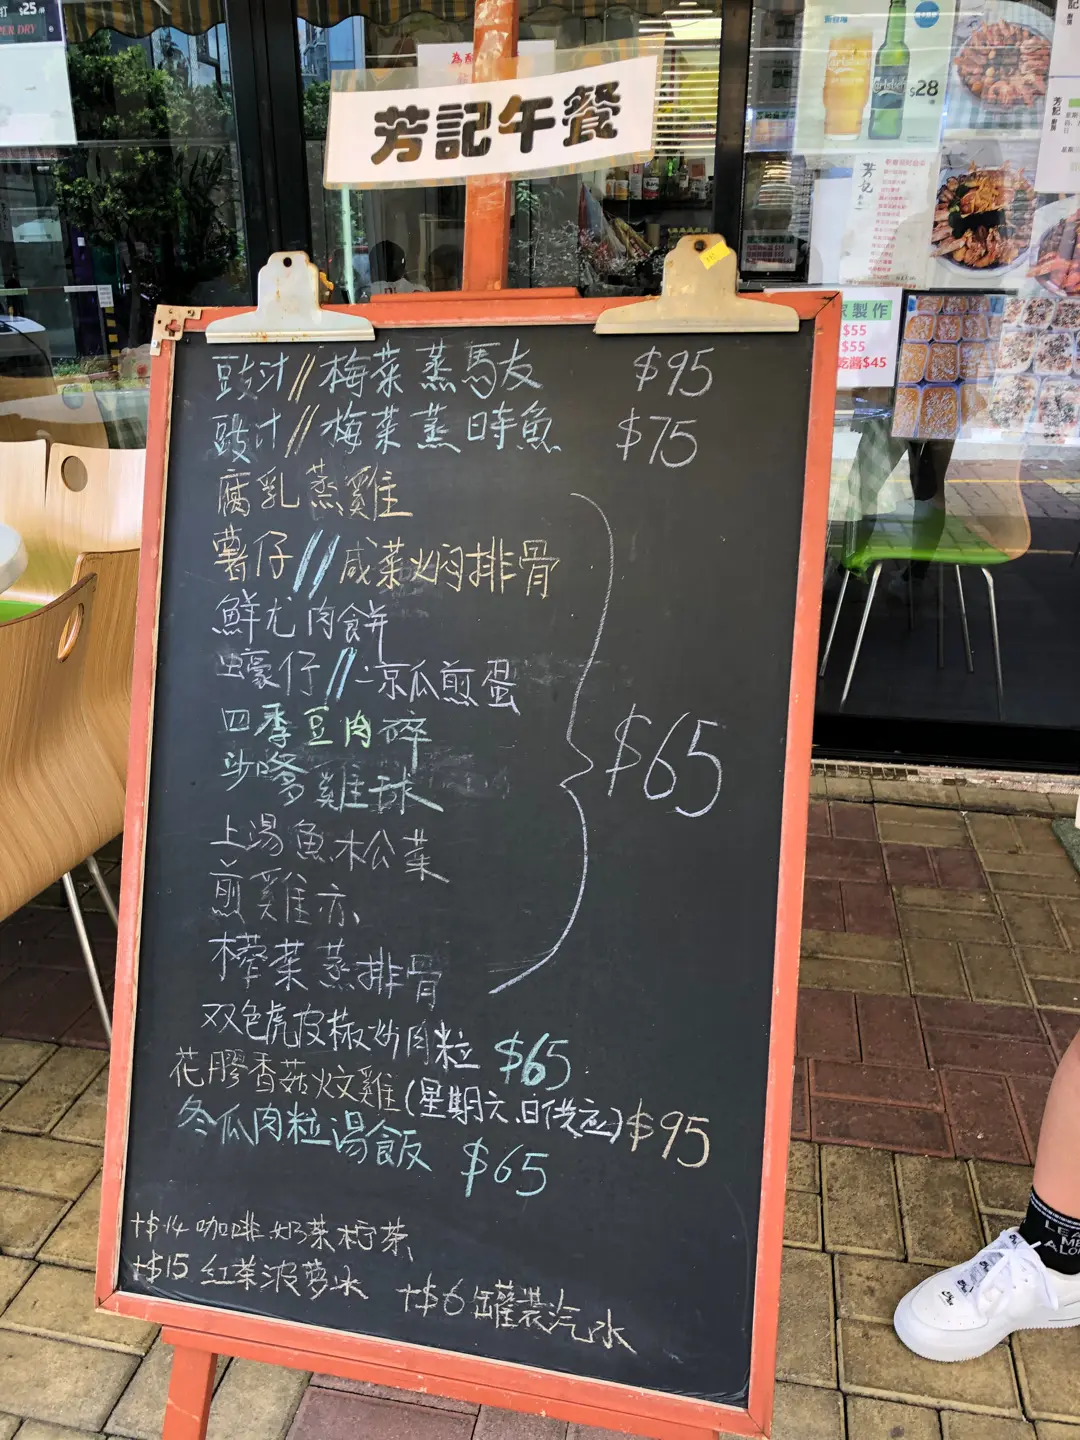 $25
芳記午餐
$28
芳記
製作
$55
$55
$45
豉汁//梅菜蒸馬友 $95
豉汁//梅菜蒸時魚 $75
腐乳蒸雞
薯仔//咸菜炆排骨
鮮尤肉餅
蠔仔//凉瓜煎蛋
四季豆肉碎
沙嗲雞球
上湯魚松菜
煎雞亦
榨菜蒸排骨
$65
双色虎皮椒炒肉粒 $65
花膠香菇炆雞(星期六、日供应) $95
冬瓜肉粒湯飯 $65
+$14 咖啡奶茶柠茶
+$15 红茶波萝冰
+$6 罐装汽水